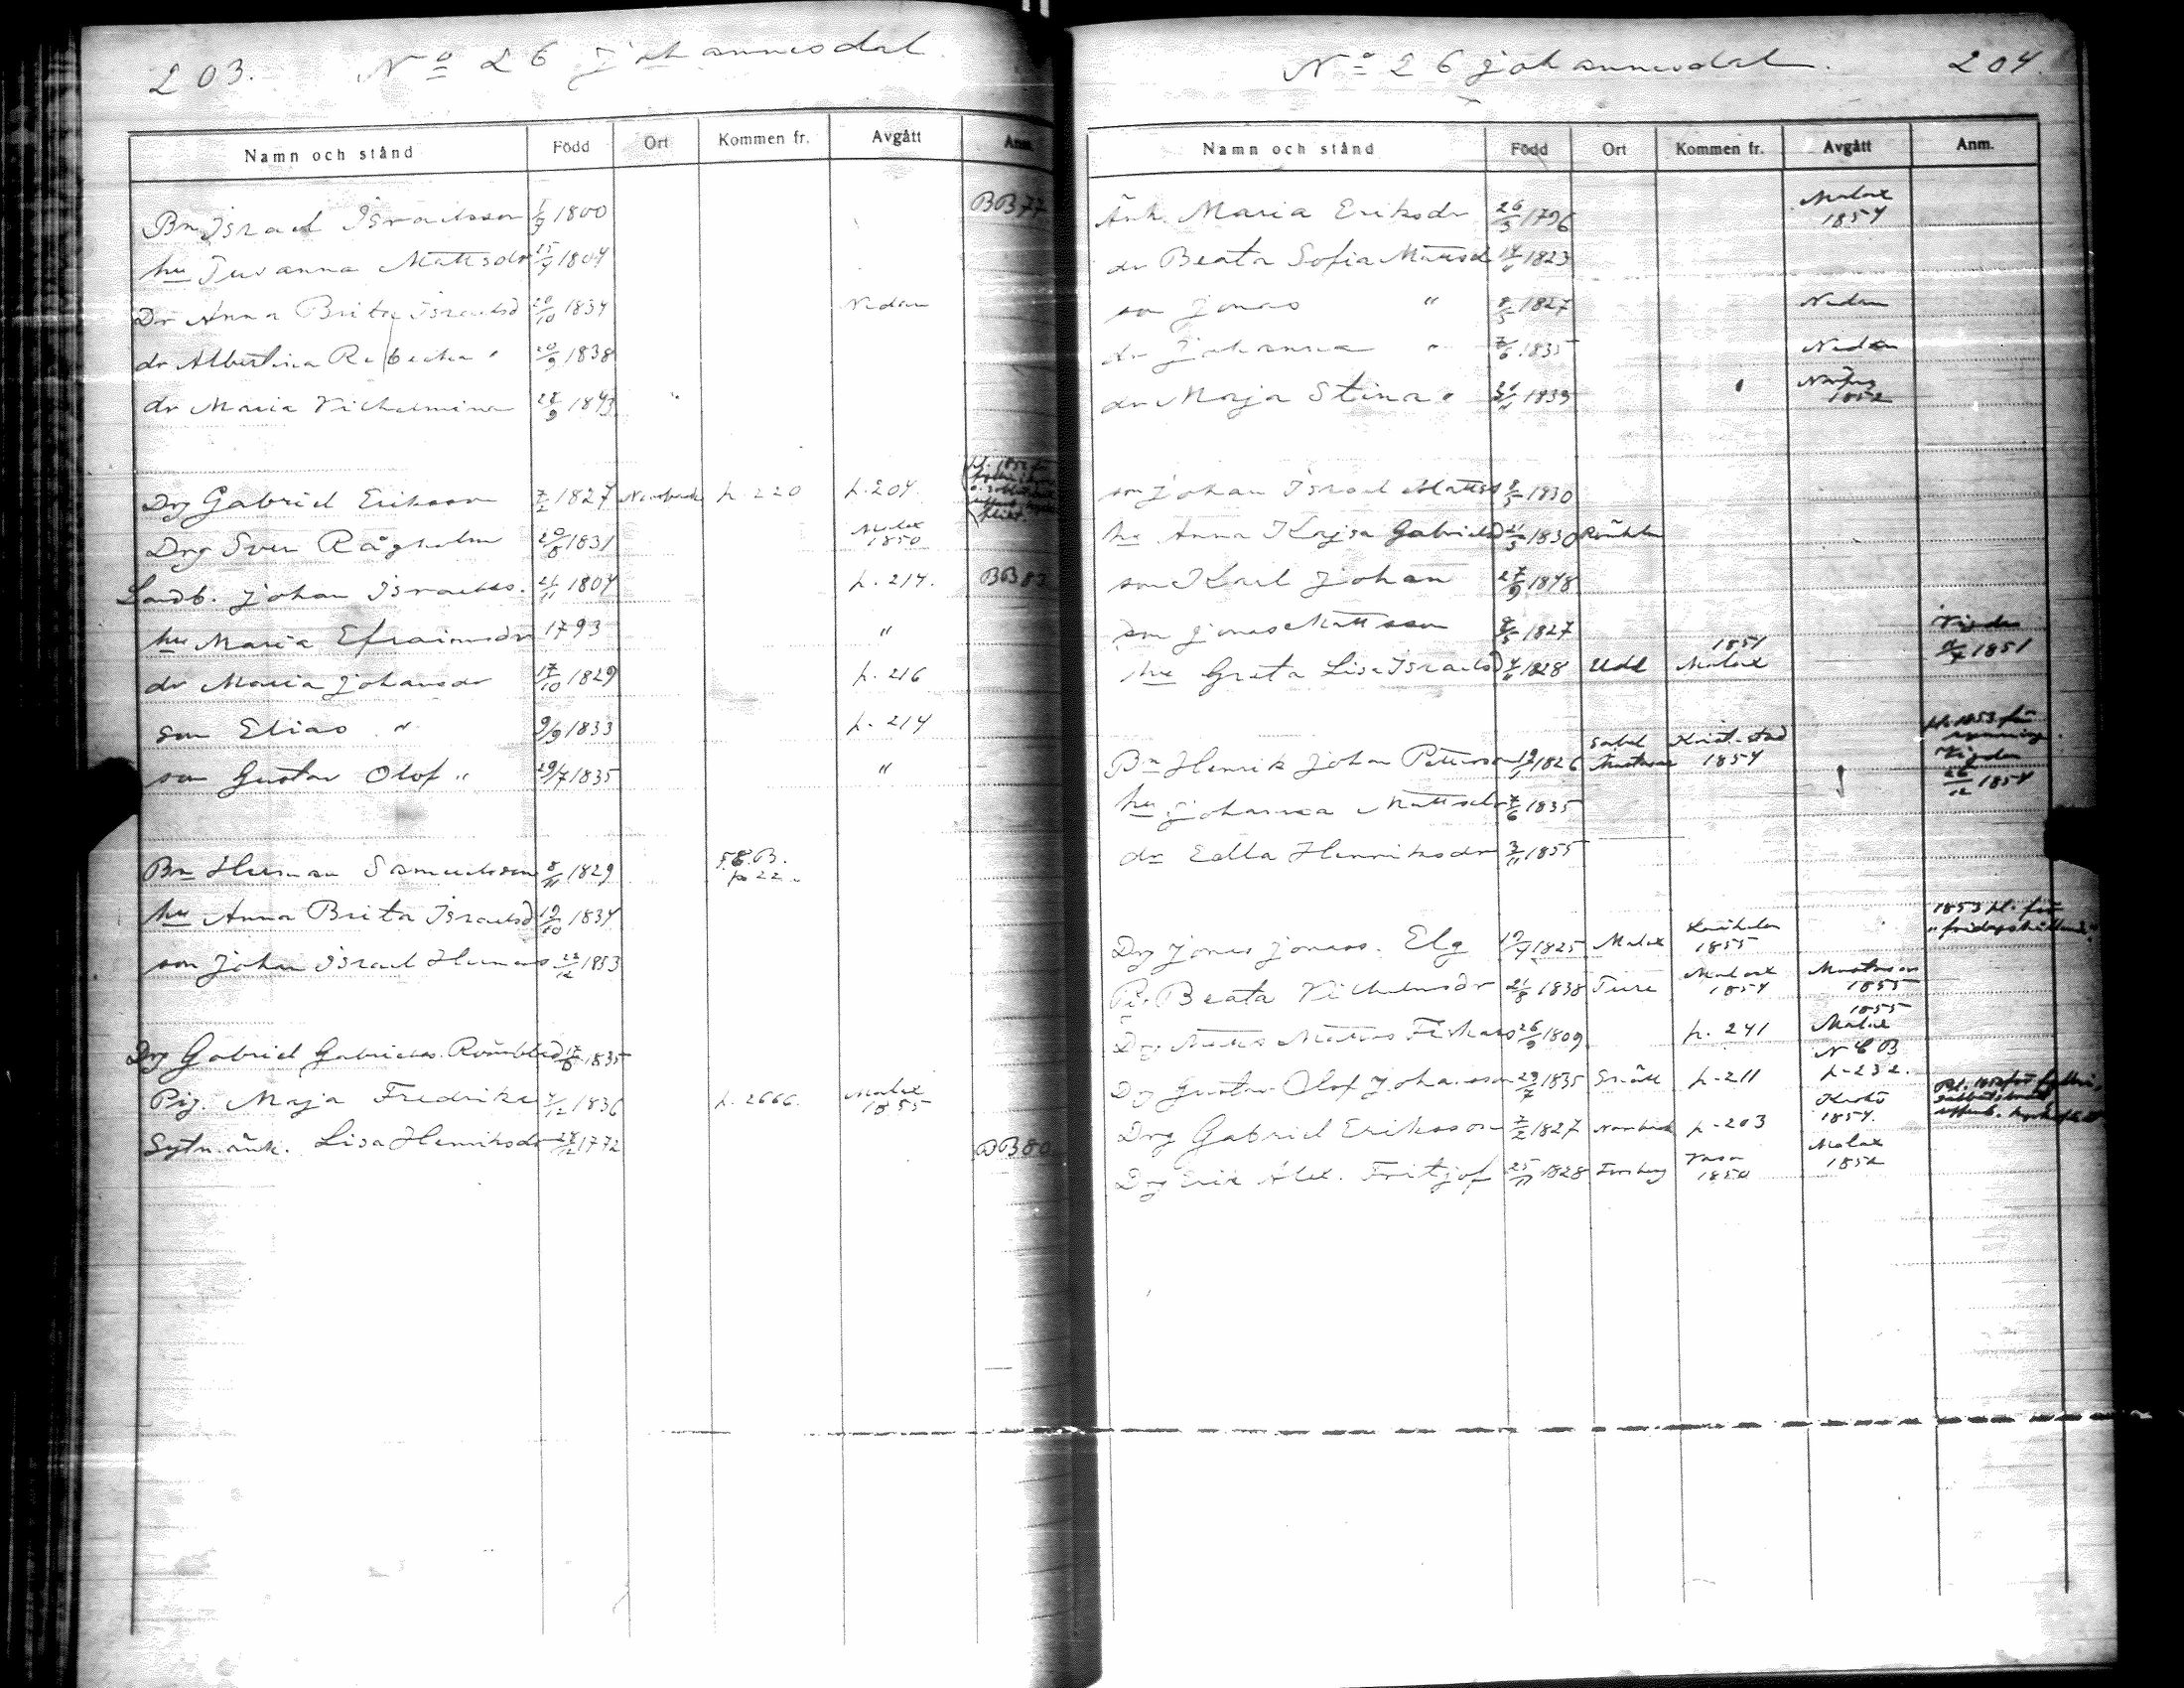 203. No 26 Johannesdal
Namn och stånd Född Ort Kommen fr. Avgått Anm.
Bn Israel Israelsson 1/9 1800 BB77
hu Susanna Mattsdr 25/9 1804
Dr Anna Brita Israelsd 20/10 1834 Nedan
dr Albertina Rebecka " 20/9 1838
dr Maria Vilhelmina 28/9 1843 "
Drg Gabriel Eriksson 7/2 1827 p. 220 p. 204
Drg Sven Rågholm 20/8 1831 Malax 1850
Landb. Johan Israelss. 24/11 1804 p. 214. BB82
hu Maria Efraimsdr 1793 "
dr Maria Johansdr 17/10 1829 p. 216
son Elias " 9/9 1833 p. 214
son Gustav Olof " 29/7 1835 "
Bn Herman Samuelsson 8/11 1829 F.C.B. p. 22.
hu Anna Brita Israelsd 19/10 1834
son Johan Israel Hermans 22/12 1853
Drg Gabriel Gabrielss. Rönnblad 17/6 1835
Pig. Maja Fredrika 4/12 1836 p. 2666. Malax 1855
Sytn. änk. Lisa Henriksdr 24/12 1772 BB80
No 26 Johannesdal. 204.
Namn och stånd Född Ort Kommen fr. Avgått Anm.
Änk. Maria Eriksdr 26/3 1796 Malax 1854
dr Beata Sofia Mattsd 14/11 1823
son Jonas " 8/5 1827 Nedan
dr Johanna " 7/6 1835 Nedan
dr Maja Stina " 1839 1852
son Johan Israel Mattss 8/5 1830
hu Anna Kajsa Gabrielsd 21/3 1830
son Karl Johan 27/9 1848
son Jonas Mattsson 8/5 1827 Vigda
hu Greta Lisa Israelsd 4/11 1828 Udd Malax 1851 1851
Bn Henrik Johan Pettersson 19/1 1826 Krist.stad 1854 pl. 1853 för
hu Johanna Mattsdr 7/6 1835 Vigda 26/12 1854
dr Edla Henriksdr 3/11 1855
Drg Jonas Jonass. Elg 19/4 1825 Malax 1855 1853 pl. för
Pi. Beata Vilhelmsdr 21/8 1838 Ture Malax 1854 1855
Drg Matts Mattss Fiskars 26/9 1809 p. 241 1855 Malax
Drg Gustav Olof Johansson 29/7 1835 p. 211 N C B p. 232.
Drg Gabriel Eriksson 7/2 1827 p. 203 1854.
Drg Erik Alex. Fritjof 25/11 1828 Forsberg Vasa 1850 Malax 1852